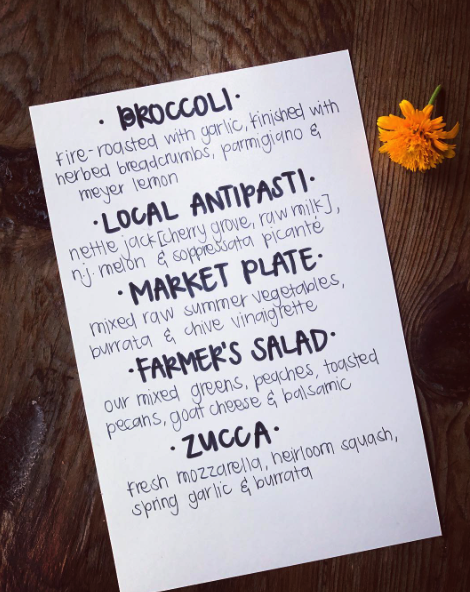 · BROCCOLI ·
fire-roasted with garlic, finished with
herbed breadcrumbs, parmigiano &
meyer lemon
· LOCAL ANTIPASTI ·
nettle jack [cherry grove, raw milk],
n.j. melon & soppressata picanté
· MARKET PLATE ·
mixed raw summer vegetables,
burrata & chive vinaigrette
· FARMER'S SALAD ·
our mixed greens, peaches, toasted
pecans, goat cheese & balsamic
· ZUCCA ·
fresh mozzarella, heirloom squash,
spring garlic & burrata